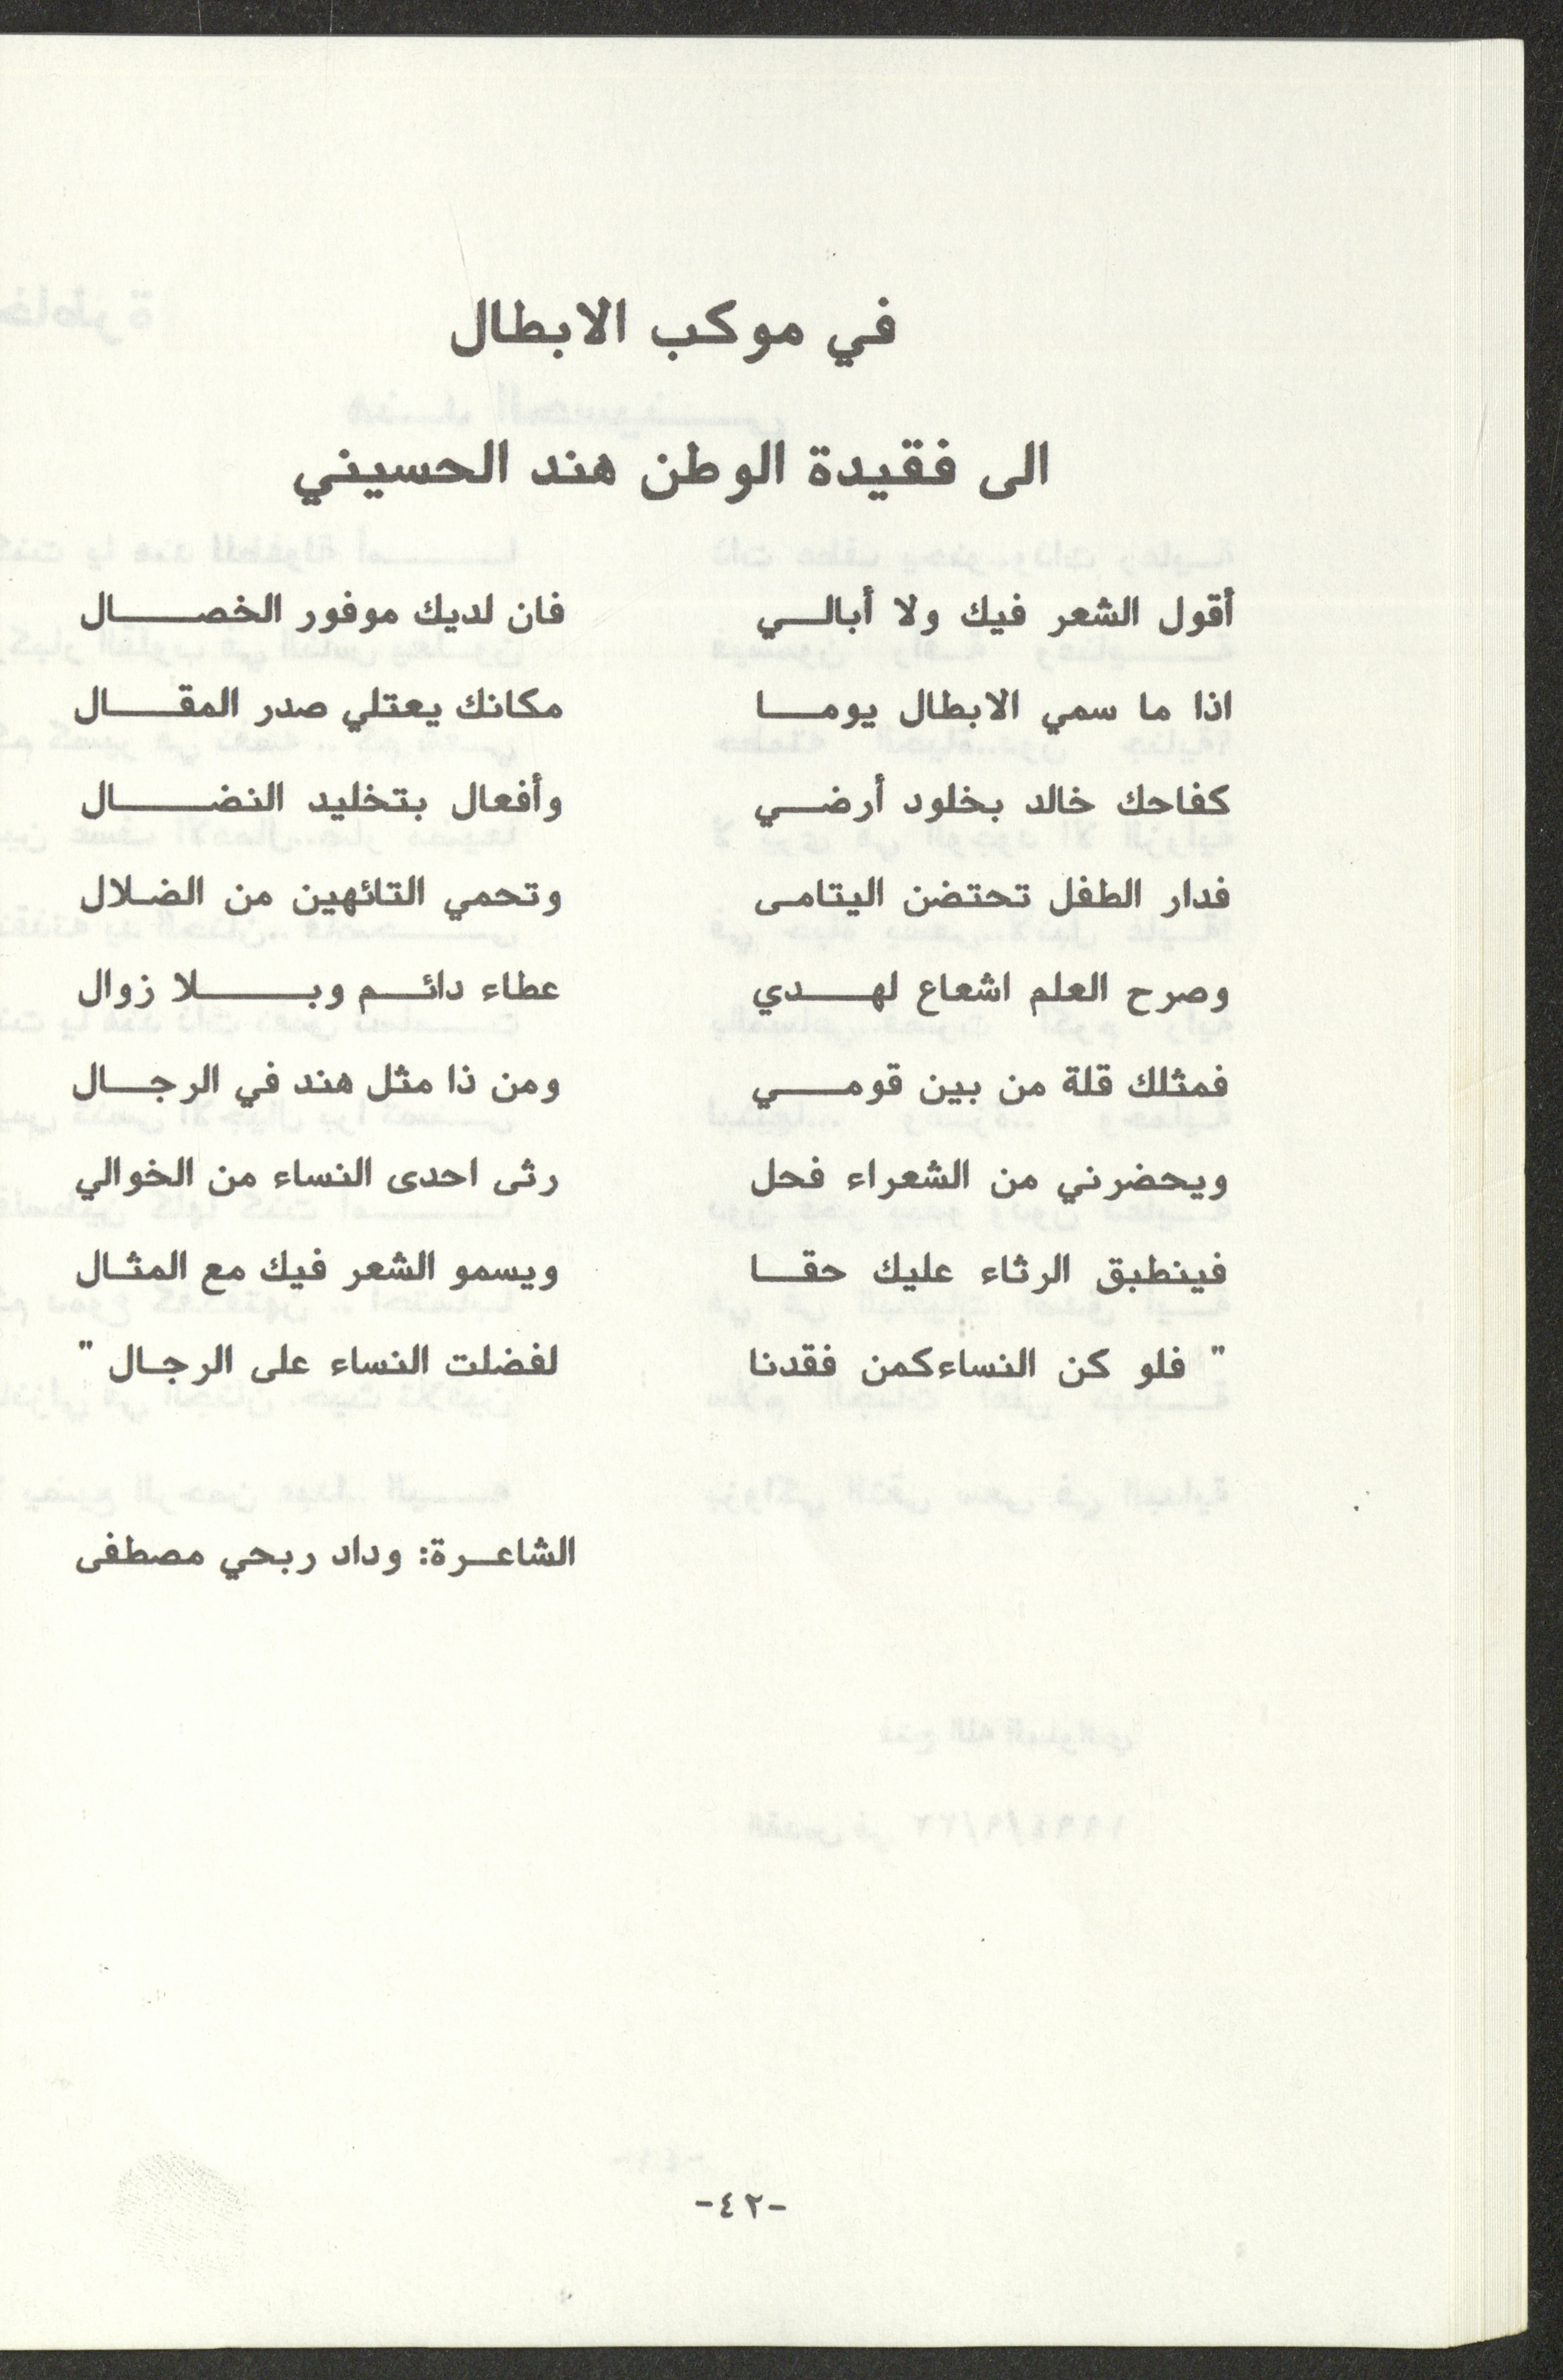 في موكب الابطال
الى فقيدة الوطن هند الحسيني
أقول الشعر فيك ولا أبالي فان لديك موفور الخصال
اذا ما سمي الابطال يوما مكانك يعتلي صدر المقال
كفاحك خالد بخلود أرضي وأفعال بتخليد النضال
فدار الطفل تحتضن اليتامى وتحمي التائهين من الضلال
وصرح العلم اشعاع لهدي عطاء دائم وبلا زوال
فمثلك قلة من بين قومي ومن ذا مثل هند في الرجال
ويحضرني من الشعراء فحل رثى احدى النساء من الخوالي
فينطبق الرثاء عليك حقا ويسمو الشعر فيك مع المثال
" فلو كن النساء كمن فقدنا لفضلت النساء على الرجال "
الشاعرة: وداد ربحي مصطفى
-٤٢-